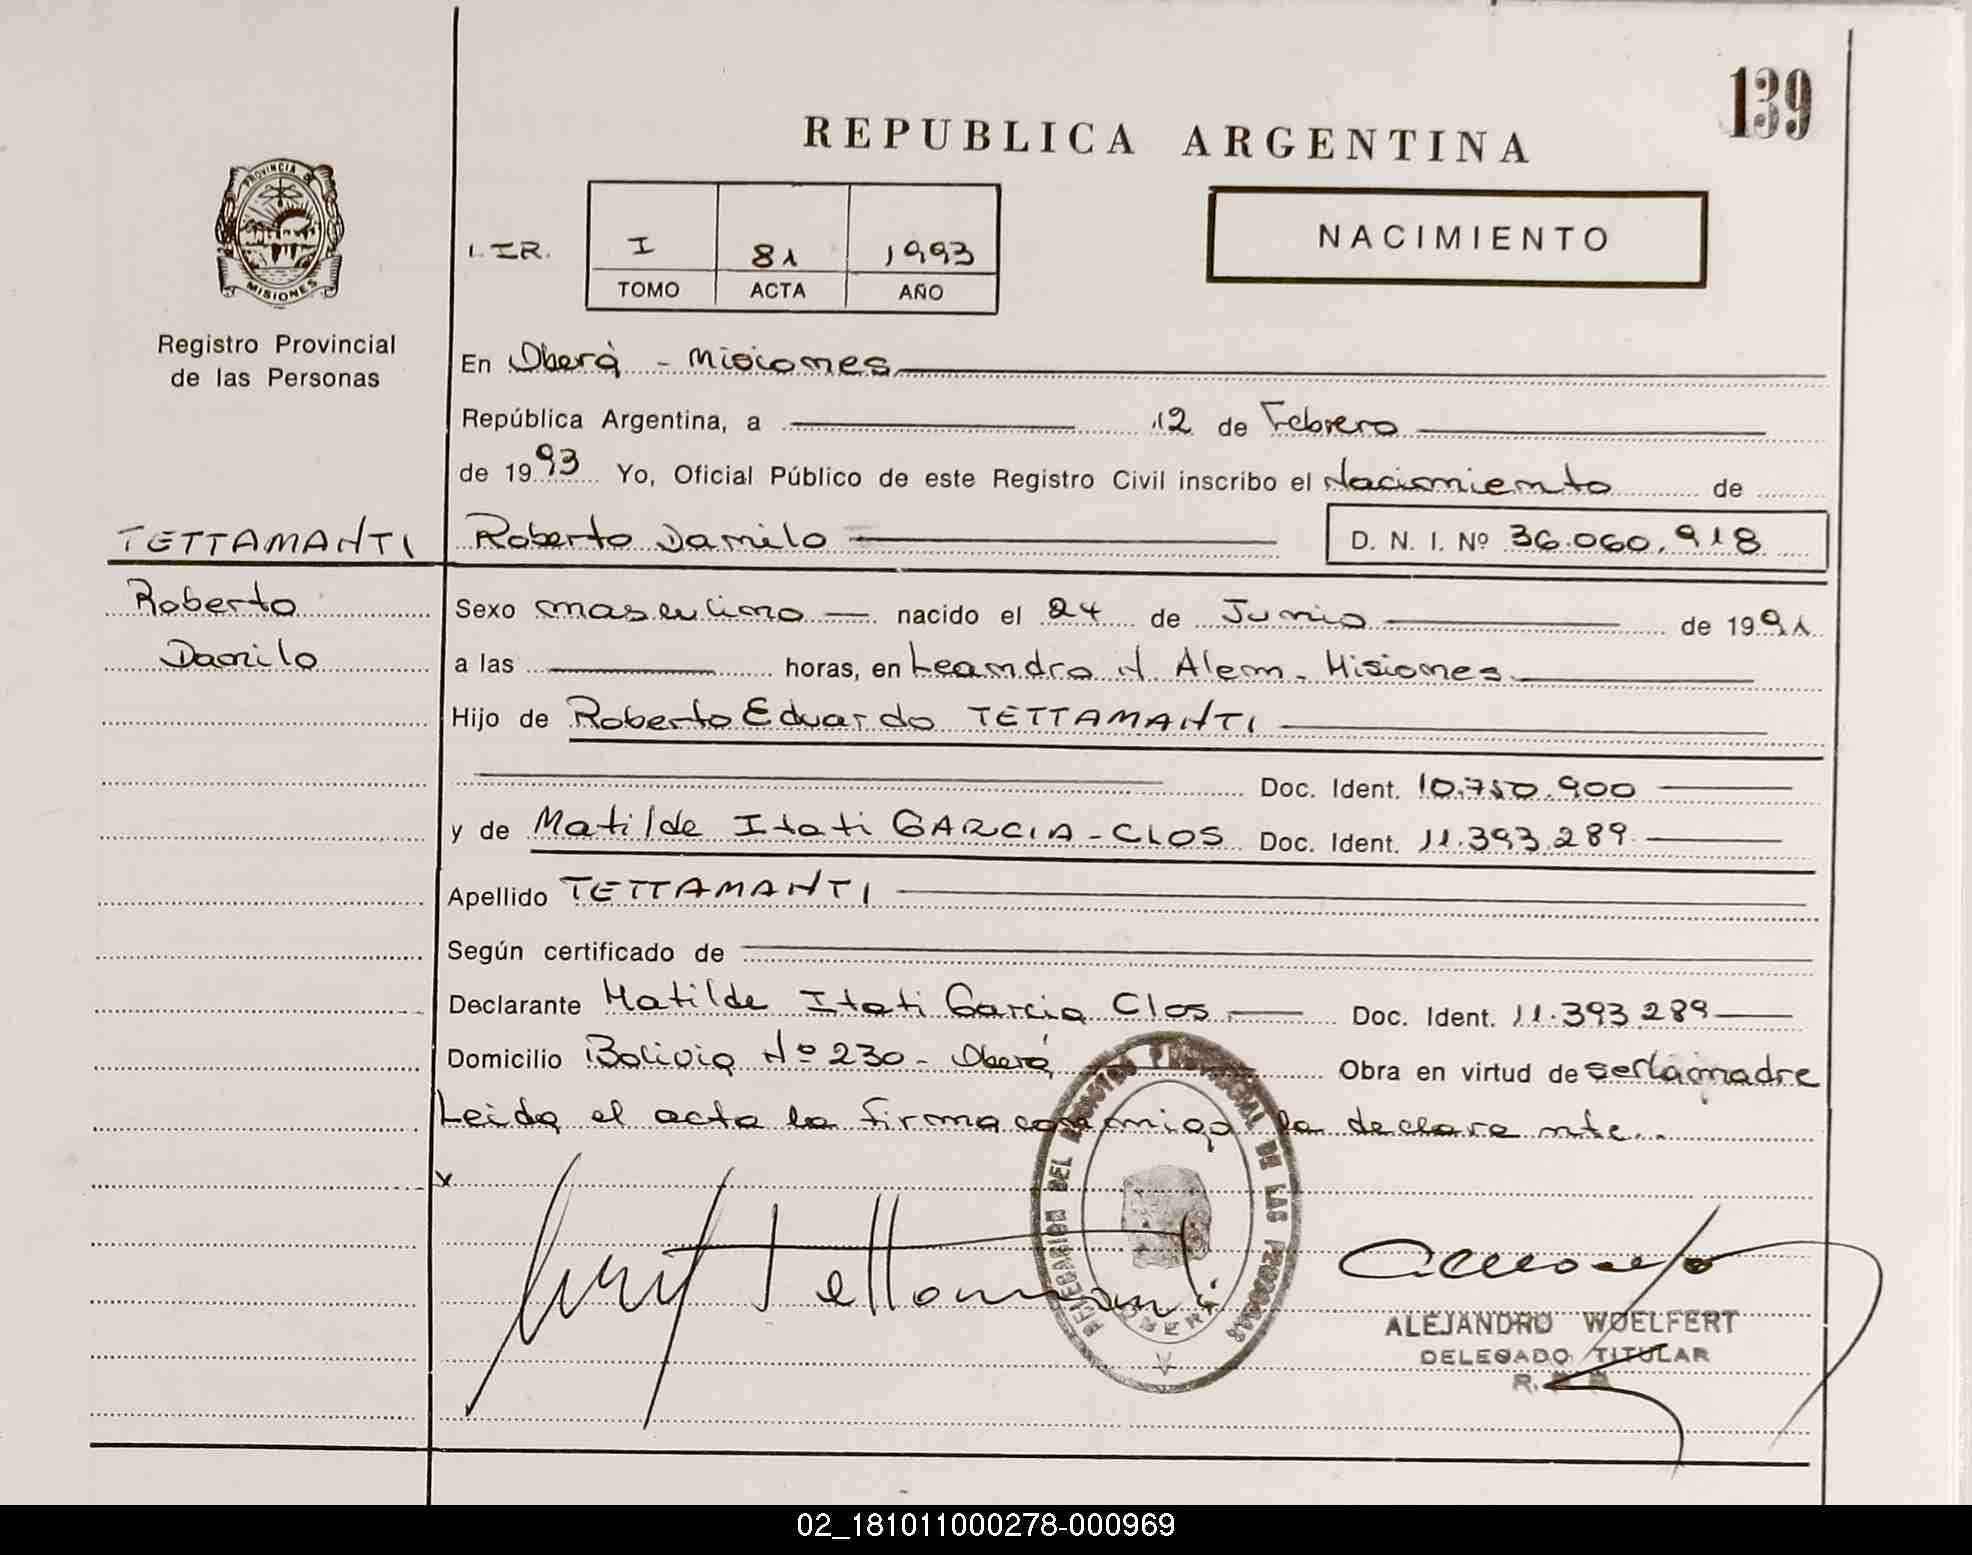 139
REPUBLICA ARGENTINA
PROVINCIA DE
MISIONES
Registro Provincial
de las Personas
1. IR.
I 81 1993
TOMO ACTA AÑO
NACIMIENTO
En Oberá - Misiones
República Argentina, a 12 de Febrero
de 1993 Yo, Oficial Público de este Registro Civil inscribo el Nacimiento de
TETTAMANTI Roberto Danilo D. N. I. Nº 36.060.918
Roberto Sexo masculino nacido el 24 de Junio de 1991
Danilo a las horas, en Leandro N Alem - Misiones
Hijo de Roberto Eduardo TETTAMANTI
Doc. Ident. 10.750.900
y de Matilde Itati GARCIA-CLOS Doc. Ident. 11.393.289
Apellido TETTAMANTI
Según certificado de
Declarante Matilde Itati Garcia Clos Doc. Ident. 11.393.289
Domicilio Bolivia Nº 230 - Oberá Obra en virtud de ser la madre
Leida el acta la firma conmigo la declarante.
x
Tettamanti
DELEGACION DEL REGISTRO PROVINCIAL DE LAS PERSONAS
OBERA
ALEJANDRO WOELFERT
DELEGADO TITULAR
02_181011000278-000969